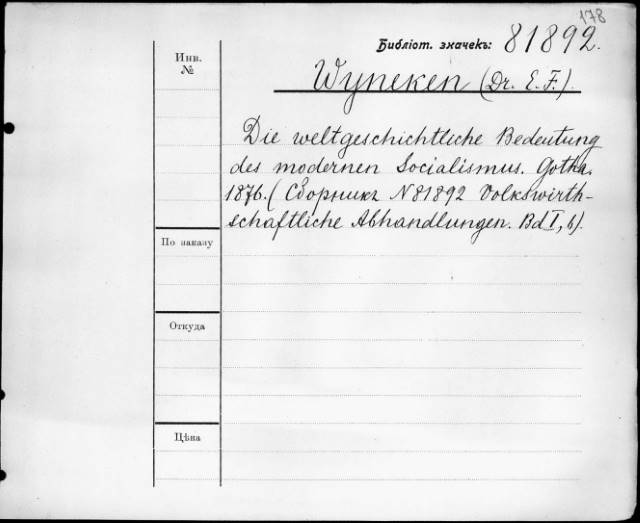 178
Библіот. значекъ: 81892.
Инв.
№
Wyneken (Dr. E. F.).
Die weltgeschichtliche Bedeutung
des modernen Socialismus. Gotha.
1876. (Сборникъ N 81892 Volkswirth-
schaftliche Abhandlungen. Bd I, 6).
По заказу
Откуда
Цѣна